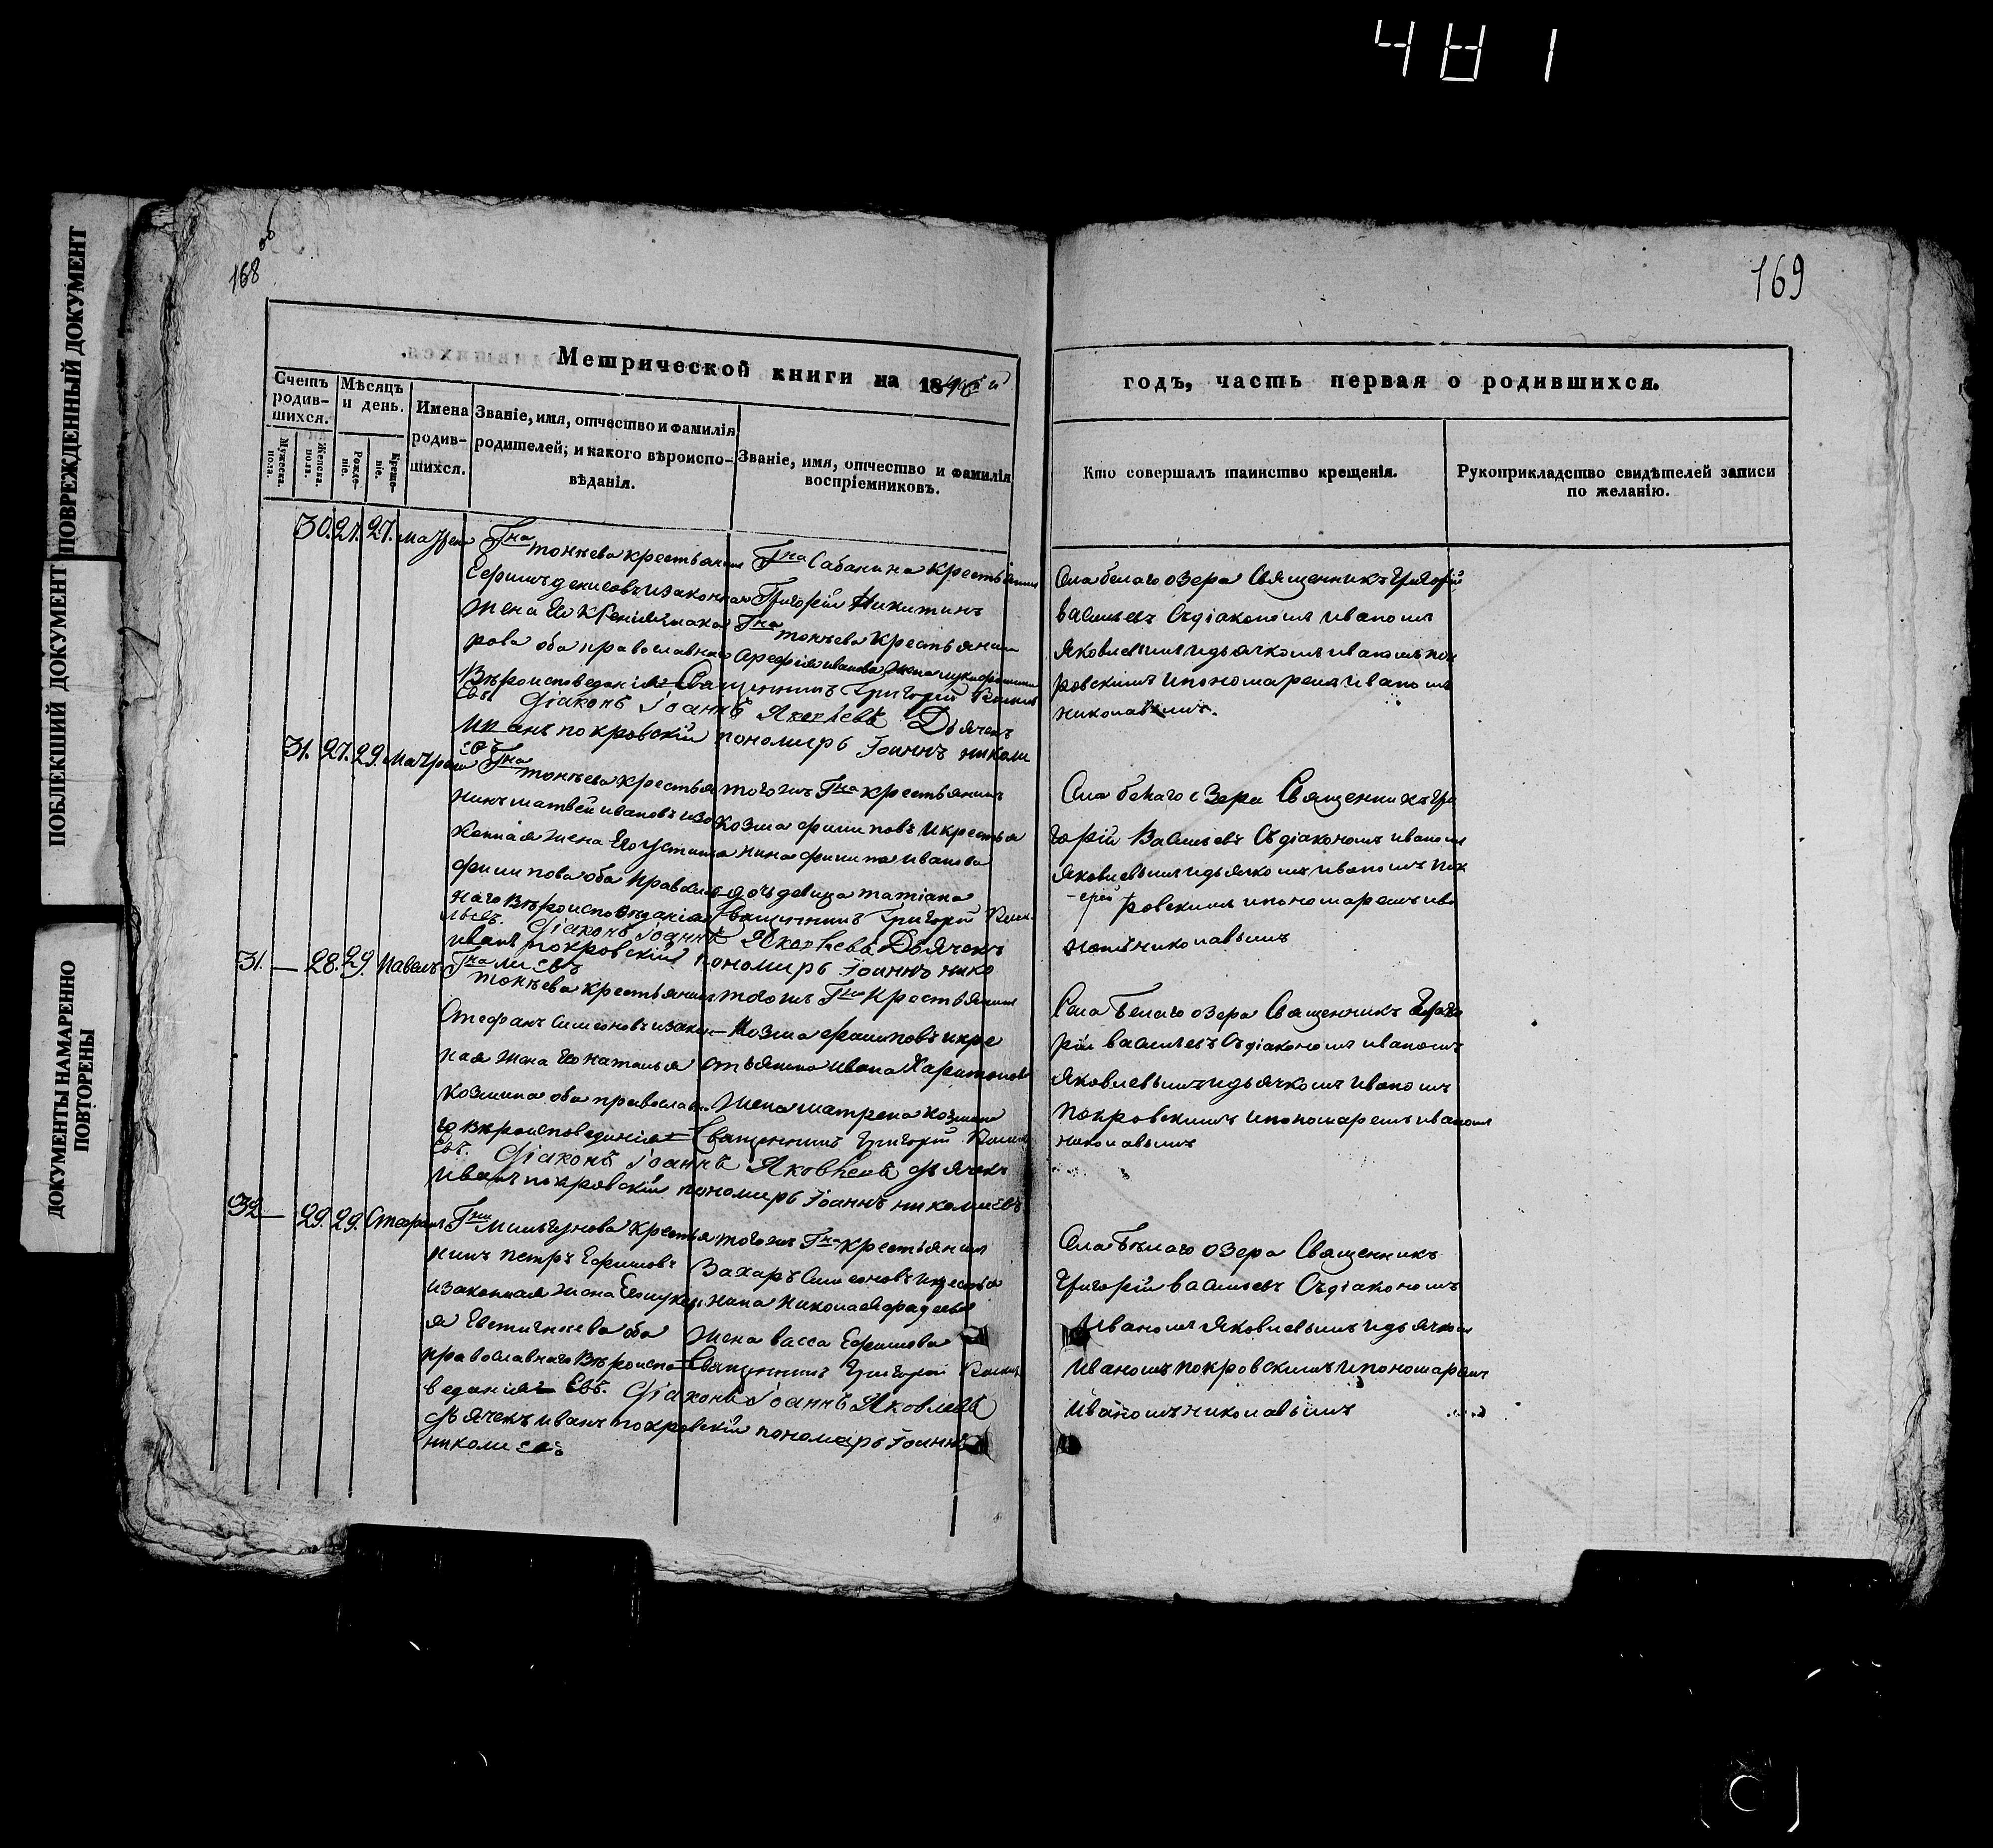 481
ПОВРЕЖДЕННЫЙ ДОКУМЕНТ
ПОБЛЕКШИЙ ДОКУМЕНТ
ДОКУМЕНТЫ НАМАРЕННО
ПОВТОРЕНЫ
168
169
Метрической книги на 18
годъ, часть первая о родившихся.
Счетъ родив-шихся.
Мужеска. пола.
Женска. пола.
Мѣсяцъ и день.
Рожде-ніе.
Креще-ніе.
Имена родив-шихся.
Званіе, имя, отчество и фамилія родителей; и какого вѣроиспо-вѣданія.
Званіе, имя, отчество и фамилія воспріемниковъ.
Кто совершалъ таинство крещенія.
Рукоприкладство свидѣтелей записи по желанію.
30. 27. 27. Мавра
Гна тонѣева крестьянинъ
Ефимъ денисовъ изаконная
Жена Его Ксения
рова оба православнаго
Вѣроисповеданія
Гна Сабанина крестьянинъ
Григорій Никитинъ
Гна тонѣева крестьянин
Священникъ Григорій Васильевъ
Діаконъ Іоаннъ Яковлевъ Дьячекъ
Иванъ покровскій пономарь Іоаннъ николаевъ
Села белаго озера Священникъ Григорій
васильевъ Съдіакономъ иваномъ
яковлевымъ идьячкомъ иваномъ пок
ровскимъ ипономаремъ иваномъ
николавымъ.
31. 27. 29.
Гна тонѣева крестья
нинъ матвей ивановъ изо
конная жена Его устинья
филипова оба православ
наго Вѣроисповѣданія
тогожъ Гна крестьянинъ
Козма филиповъ икрестья
нина филипа иванова
дочь девица татіана
Священникъ Григорій Васильевъ.
Діаконъ Іоаннъ Яковлевъ Дьячекъ
иванъ покровскій пономарь Іоаннъ николаевъ
Села белаго озера Священникъ Гри
горій Васильевъ Съдіакономъ иваномъ
яковлевымъ идьячкомъ иваномъ пок
ровскимъ ипономаремъ ива
номъ николавымъ
31. — 28. 29. Павелъ
Гна тонѣева крестьянинъ
Стефанъ Симеоновъ изакон
ная жена Его наталья
козмина оба православна
го вѣроисповеданія
тогожъ Гна крестьянинъ
Козма филиповъ икре
стьянина ивана Харитонова
жена матрена козмина
Священникъ Григорій Васильевъ.
Діаконъ Іоаннъ Яковлевъ дьячекъ
иванъ покровскій пономарь Іоаннъ николаевъ
Села Белаго озера Священникъ Григо
рій васильевъ Съдіакономъ иваномъ
яковлевымъ идьячкомъ иваномъ
покровскимъ ипономаремъ иваномъ
николавымъ
32 — 29. 29. Стефанъ
Гжи Мильгунова крестья
нинъ петръ Ефимовъ
изаконная жена Его лукер
я Евстигнеева оба
православнаго Вѣроиспо
веданія
тогожъ Гна крестьянинъ
Захаръ Симеоновъ икрестья
нина николая фадеева
жена васса Ефимова
Священникъ Григорій Васильевъ.
Діаконъ Іоаннъ Яковлевъ
дьячекъ иванъ покровскій пономарь Іоаннъ
николаевъ
Села Бѣлаго озера Священникъ
Григорій васильевъ Съдіакономъ
Иваномъ яковлевымъ идьячкомъ
иваномъ покровскимъ ипономаремъ
иваномъ николавымъ